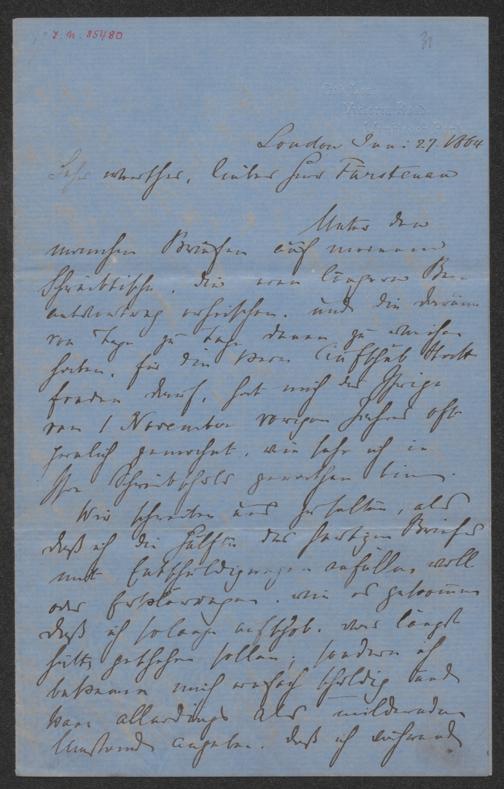 I.N. 85480
31
London Jun: 27. 1864
Sehr werther, lieber Herr Fürstenau
Unter den
manchen Briefen auf meinem
Schreibtische, die eine längere Be-
antwortung erheischen, und die darum
von Tage zu Tage denen zu weichen
haben, für die kein Aufschub Statt
finden darf, hat mich der Ihrige
vom 1 November vorigen Jahres oft
peinlich gemahnt, wie sehr ich in
Ihre Schreibschuld gerathen bin.
Wir schreiben uns zu selten, als
daß ich die Hälfte des heutigen Briefes
mit Entschuldigungen anfüllen soll
oder Erklärungen, wie es gekommen
daß ich so lange aufschob, was längst
hätte geschehen sollen; sondern ich
bekenne mich einfach schuldig und
kann allerdings als mildernden
Umstand angeben, daß ich während